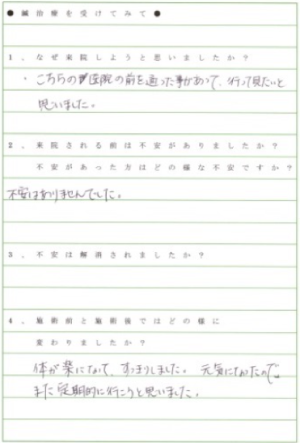 ●鍼治療を受けてみて●
1、なぜ来院しようと思いましたか？
・こちらの医院の前を通った事があって、行って見たいと
思いました。
2、来院される前は不安がありましたか？
不安があった方はどの様な不安ですか？
不安はありませんでした。
3、不安は解消されましたか？
4、施術前と施術後ではどの様に
変わりましたか？
体が楽になって、すっきりしました。元気になれたので、
また定期的に行こうと思いました。